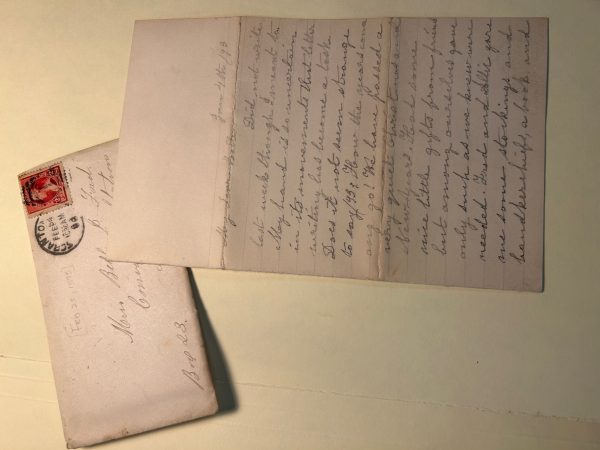 Jan 4th /93
My dear
Did not write
last week though I meant to
My hand is so uncertain
in its movements that letter
writing has become a task.
Does it not seem strange
to say /93? How the years come
and go! We have passed a
very quiet Christmas and
New Years. Had some
nice little gifts from friends
but among ourselves gave
only such as we knew were
needed. Fred and Allie gave
me some stockings and
handkerchiefs, a book and
FEB 2
AM
93
Miss B.
Box 23.
[Feb 25, 1893]